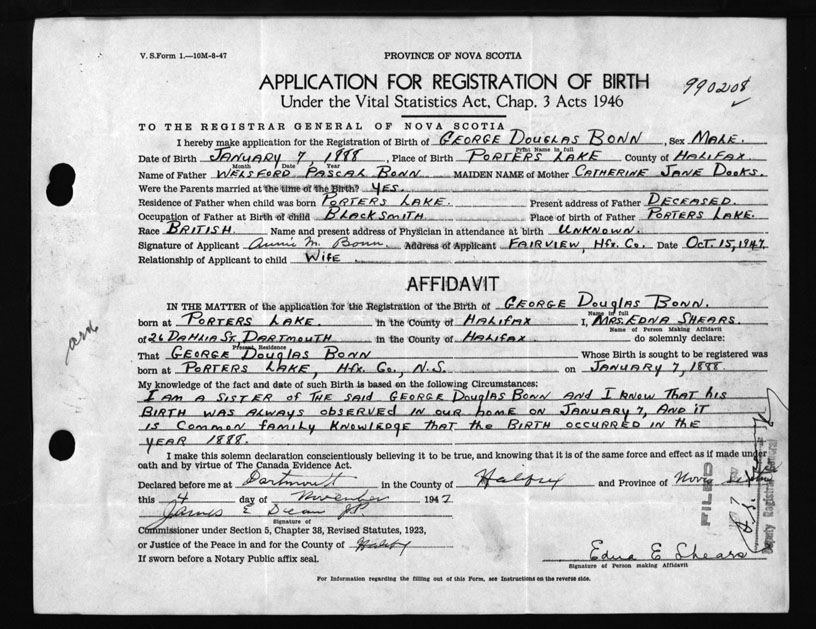 V. S. Form 1.—10M-8-47
PROVINCE OF NOVA SCOTIA
APPLICATION FOR REGISTRATION OF BIRTH
990208
Under the Vital Statistics Act, Chap. 3 Acts 1946
TO THE REGISTRAR GENERAL OF NOVA SCOTIA
I hereby make application for the Registration of Birth of GEORGE DOUGLAS BONN, Sex MALE.
Print Name in full
Date of Birth JANUARY 7, 1888, Place of Birth PORTERS LAKE County of HALIFAX.
Month Date Year
Name of Father WELSFORD PASCAL BONN MAIDEN NAME of Mother CATHERINE JANE DOOKS.
Were the Parents married at the time of the Birth? YES.
Residence of Father when child was born PORTERS LAKE. Present address of Father DECEASED.
Occupation of Father at Birth of child BLACKSMITH Place of birth of Father PORTERS LAKE.
Race BRITISH. Name and present address of Physician in attendance at birth UNKNOWN.
Signature of Applicant Annie M. Bonn Address of Applicant FAIRVIEW, Hfx. Co. Date OCT. 15, 1947
Relationship of Applicant to child WIFE
AFFIDAVIT
IN THE MATTER of the application for the Registration of the Birth of GEORGE DOUGLAS BONN.
Name in full
born at PORTERS LAKE. in the County of HALIFAX I, MRS. EDNA SHEARS.
Name of Person Making Affidavit
of 26 DAHLIA ST. DARTMOUTH in the County of HALIFAX. do solemnly declare:
Present Residence
That GEORGE DOUGLAS BONN Whose Birth is sought to be registered was
born at PORTERS LAKE, Hfx. Co., N.S. on JANUARY 7, 1888.
My knowledge of the fact and date of such Birth is based on the following Circumstances:
I AM A SISTER OF THE SAID GEORGE DOUGLAS BONN AND I KNOW THAT HIS
BIRTH WAS ALWAYS OBSERVED IN OUR HOME ON JANUARY 7, AND IT
IS COMMON FAMILY KNOWLEDGE THAT THE BIRTH OCCURRED IN THE
YEAR 1888.
I make this solemn declaration conscientiously believing it to be true, and knowing that it is of the same force and effect as if made under
oath and by virtue of The Canada Evidence Act.
Declared before me at Dartmouth in the County of Halifax and Province of Nova Scotia
this 4 day of November 1947
James E Dean JP.
Signature of
Commissioner under Section 5, Chapter 38, Revised Statutes, 1923,
or Justice of the Peace in and for the County of Halifax
If sworn before a Notary Public affix seal.
Edna E Shears
Signature of Person making Affidavit
For Information regarding the filling out of this Form, see Instructions on the reverse side.
FILED
Deputy Registrar General